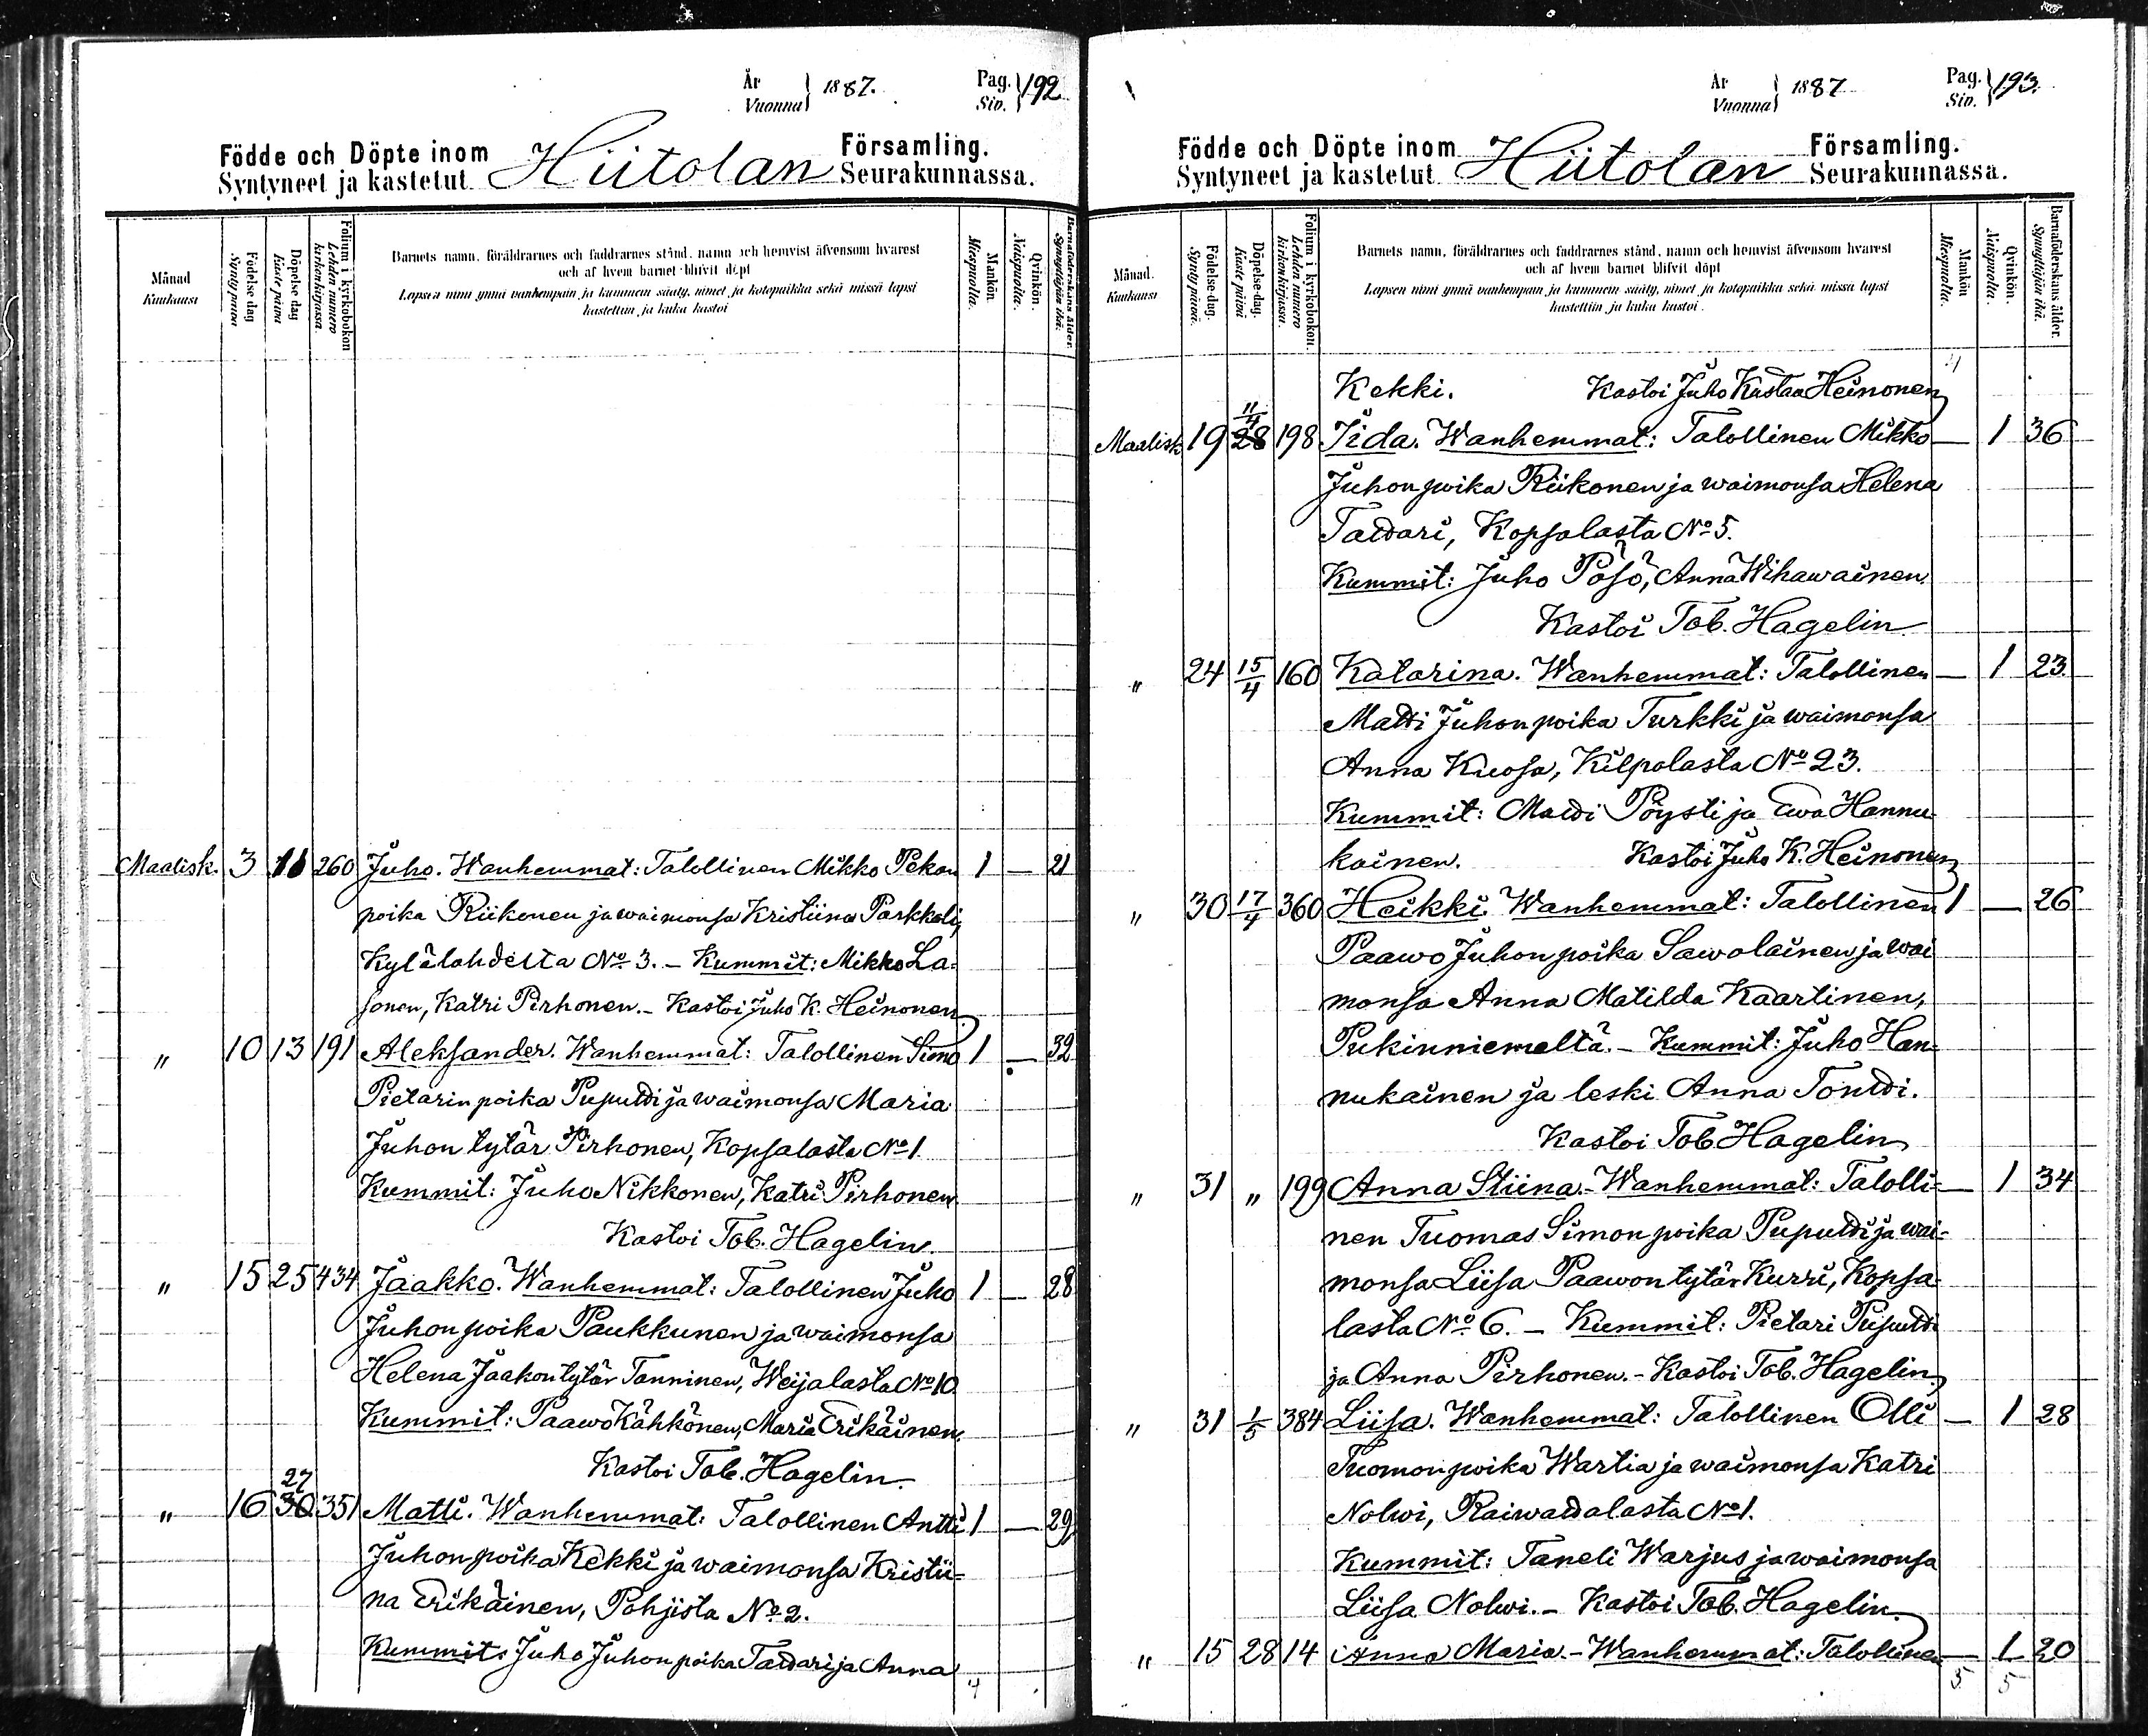 År
Vuonna } 1887. Pag.
Siv. } 192
Födde och Döpte inom
Syntyneet ja kastetut Hiitolan Församling.
Seurakunnassa.
Månad
Kuukausi
Födelse dag
Synty päivä
Döpelse dag
Kaste päivä
Folium i kyrkoboken
Lehden numero kirkonkirjassa.
Barnets namn, föräldrarnes och faddrarnes stånd, namn och hemvist äfvensom hvarest
och af hvem barnet blifvit döpt
Lapsen nimi ynnä vanhempain ja kummein sääty, nimet ja kotopaikka sekä missä lapsi
kastettiin ja kuka kastoi
Mankön.
Miespuolta.
Qvinkön.
Naispuolta.
Barnaföderskans ålder.
Synnyttäjän ikä.
Maalisk. 3 11 260 Juho. Wanhemmat: Talollinen Mikko Pekan 1 — 21
poika Riikonen ja waimonsa Kristiina Parkkali,
Kylälahdesta No 3. – Kummit: Mikko La-
sonen, Katri Pirhonen. – Kastoi Juho K. Heinonen
" 10 13 191 Aleksander. Wanhemmat: Talollinen Simo 1 — 32
Pietarin poika Puputti ja waimonsa Maria
Juhon tytär Pirhonen, Kopsalasta No 1
Kummit: Juho Nikkonen, Katri Pirhonen
Kastoi Tob. Hagelin.
" 15 25 434 Jaakko. Wanhemmat: Talollinen Juho 1 — 28
Juhon poika Paukkunen ja waimonsa
Helena Jaakon tytär Tanninen, Weijalasta No 10
Kummit: Paawo Kähkönen, Maria Erikäinen.
Kastoi Tob. Hagelin.
27
" 16 30 351 Matti. Wanhemmat: Talollinen Antti 1 — 29
Juhon poika Kekki ja waimonsa Kristii-
na Erikäinen, Pohjista No 2.
Kummit: Juho Juhon poika Tattari ja Anna
4
År
Vuonna } 1887 Pag.
Siv. } 193.
Födde och Döpte inom
Syntyneet ja kastetut Hiitolan Församling.
Seurakunnassa.
Månad.
Kuukausi
Födelse-dag.
Synty päivä.
Döpelse-dag.
Kaste päivä
Folium i kyrkoboken.
Lehden numero kirkonkirjassa.
Barnets namn, föräldrarnes och faddrarnes stånd, namn och hemvist äfvensom hvarest
och af hvem barnet blifvit döpt
Lapsen nimi ynnä vanhempain ja kummein sääty, nimet ja kotopaikka sekä missä lapsi
kastettiin ja kuka kastoi.
Mankön
Miespuolta.
Qvinkön.
Naispuolta.
Barnaföderskans ålder.
Synnyttäjän ikä.
4
Kekki. Kastoi Juho Kustaa Heinonen
11/4
Maalisk 19 28 198 Iida. Wanhemmat: Talollinen Mikko — 1 36
Juhon poika Riikonen ja waimonsa Helena
Tattari, Kopsalasta No 5.
Kummit: Juho Pösö, Anna Wihawainen
Kastoi Tob. Hagelin
" 24 15/4 160 Katarina. Wanhemmat: Talollinen — 1 23.
Matti Juhon poika Turkki ja waimonsa
Anna Kuosa, Kilpolasta No 23.
Kummit: Matti Pöysti ja Ewa Hannu-
kainen. Kastoi Juho K. Heinonen
" 30 17/4 360 Heikki. Wanhemmat: Talollinen 1 — 26
Paawo Juhon poika Sawolainen ja wai
monsa Anna Matilda Kaartinen,
Pukinniemeltä. – Kummit: Juho Han-
nukainen ja leski Anna Tontti.
Kastoi Tob Hagelin
" 31 " 199 Anna Stiina. – Wanhemmat: Talolli- — 1 34
nen Tuomas Simon poika Puputti ja wai-
monsa Liisa Paawon tytär Kurri, Kopsa-
lasta No 6. – Kummit: Pietari Puputti
ja Anna Pirhonen. – Kastoi Tob. Hagelin.
" 31 1/5 384 Liisa. Wanhemmat: Talollinen Olli — 1 28
Tuomon poika Wartia ja waimonsa Katri
Nolwi, Raiwattalasta No 1.
Kummit: Taneli Warjus ja waimonsa
Liisa Nolwi. – Kastoi Tob. Hagelin.
" 15 28 14 Anna Maria. – Wanhemmat: Talollinen — 1 20
5 5